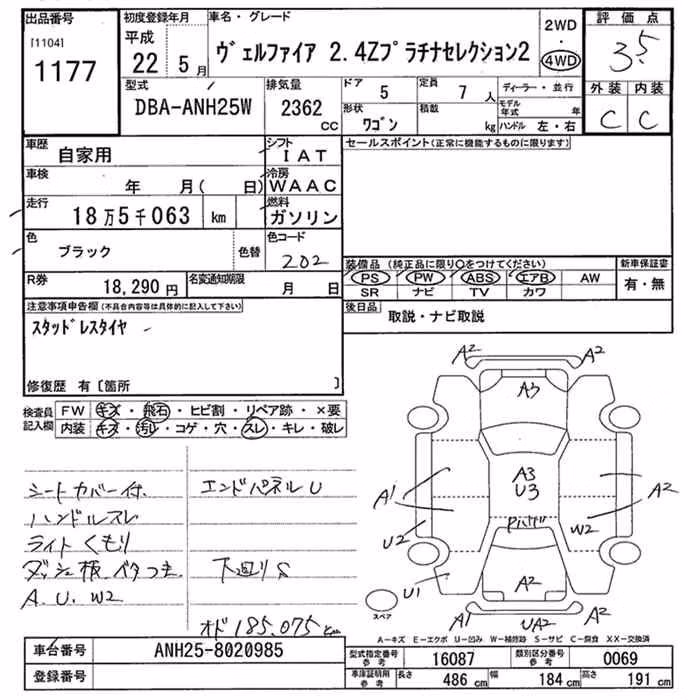 出品番号 初度登録年月 車名・グレード 2WD・4WD 評価点
[1104]
1177
平成
22 5月
ヴェルファイア 2.4Zプラチナセレクション2
3.5
型式 排気量 ドア 5 定員 7人 ディーラー・並行 外装 内装
DBA-ANH25W 2362cc 形状 ワゴン 積載 kg モデル年式 年 ハンドル 左・右 C C
車歴 自家用 シフト IAT セールスポイント(正常に機能するものに限ります)
車検 年 月( 日) 冷房 WAAC
走行 18万5千063 km 燃料 ガソリン
色 ブラック 色替 色コード 202
装備品(純正品に限り○をつけてください) 新車保証書
R券 18,290円 名変通知期限 月 日
PS PW ABS エアB AW 有・無
SR ナビ TV カワ
注意事項申告欄(不具合内容等は具体的に記入して下さい)
後日品 取説・ナビ取説
スタッドレスタイヤ
修復歴 有〔箇所 〕
検査員記入欄 FW キズ・飛石・ヒビ割・リペア跡・×要
内装 キズ・汚レ・コゲ・穴・スレ・キレ・破レ
シートカバー付. エンドパネルU
ハンドルスレ
ライトくもり
ダッシュ板ベタつき 下廻りS
A.U.W2
オド 185.075km
A2 A2
A3
A1 A3 U3 A2
U2 W2
U1 A2
A1 UA2
スペア
A−キズ E−エクボ U−凹み W−補修跡 S−サビ C−腐食 XX−交換済
車台番号 ANH25-8020985
登録番号
型式指定番号 参考 16087 類別区分番号 参考 0069
車庫証明用 参考 長さ 486cm 幅 184cm 高さ 191cm